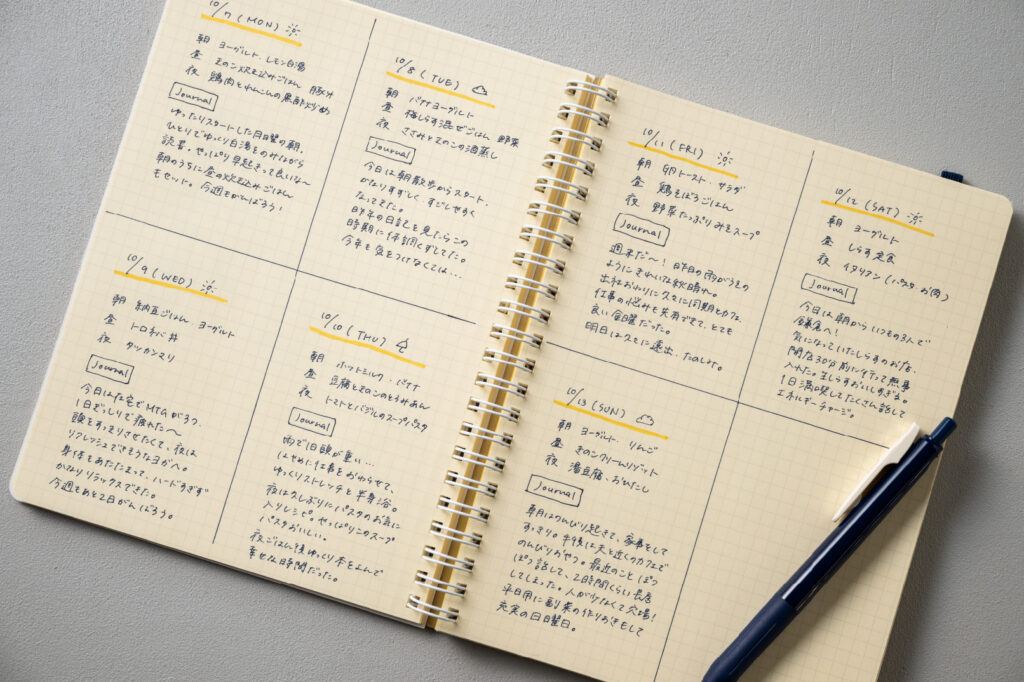 10/7 (MON)
朝 ヨーグルト・レモン白湯
昼 きのこ炊き込みごはん 豚汁
夜 鶏肉とれんこんの黒酢炒め
Journal
ゆったりスタートした月曜の朝。
ひとりでゆっくり白湯をのみながら
読書。やっぱり早起きって良いな〜
朝のうちに昼の炊き込みごはん
もセット。今週もがんばろう！
10/8 (TUE)
朝 バナナヨーグルト
昼 梅しらす混ぜごはん 野菜
夜 ささみときのこの酒蒸し
Journal
今日は朝散歩からスタート。
かなりすずしく すごしやすく
なってきた。
昨年の日記を見たらこの
時期に体調くずしてた。
今年も気をつけなくては…
10/9 (WED)
朝 納豆ごはん・ヨーグルト
昼 トロネバ丼
夜 タッカンマリ
Journal
今日は在宅でMTGがろう。
1日ぎっしりで疲れた〜
頭をすっきりさせたくて、夜は
リフレッシュできそうなヨガへ。
身体もあたたまって、ハードすぎず
かなりリラックスできた。
今週もあと2日がんばろう。
10/10 (THU)
朝 ホットミルク・バナナ
昼 豆腐ときのこのとろみあん
夜 トマトとバジルのスープパスタ
Journal
雨で1日頭が重い…
はやめに仕事をおわらせて、
ゆっくりストレッチと半身浴。
夜は久しぶりにパスタのお気に
入りレシピ。やっぱりこのスープ
パスタおいしい。
夜ごはん後ゆっくり本をよんで
幸せな時間だった。
10/11 (FRI)
朝 卵トースト・サラダ
昼 鶏そぼろごはん
夜 野菜たっぷりみそスープ
Journal
週末だ〜！昨日の雨がうその
ようにきれいな秋晴れ。
出社おわりに久々に同期とカフェ。
仕事の悩みも共有できて、とても
良い金曜だった。
明日は久々に遠出、たのしみ。
10/12 (SAT)
朝 ヨーグルト
昼 しらす定食
夜 イタリアン（パスタ・お肉）
Journal
今日は朝からいつもの3人で
鎌倉へ！
気になっていたしらすのお店、
開店30分前に行って無事
入れた。生しらすおいしすぎる。
1日満喫してたくさん話して
エネルギーチャージ。
10/13 (SUN)
朝 ヨーグルト・りんご
昼 きのこクリームリゾット
夜 湯豆腐・おひたし
Journal
朝はのんびり起きて、家事をして
すっきり。午後は夫と近くのカフェで
のんびりおやつ。最近のこと ぽつ
ぽつ話して、2時間くらい長居
してしまった。人が少なくて穴場！
平日用に副菜の作りおきもして
充実の日曜日。